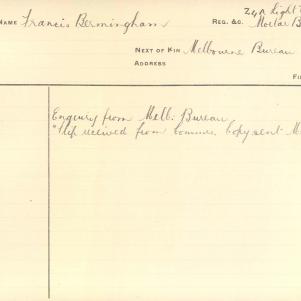 NAME Francis Bermingham REG. &C. Light
Mortar B
NEXT OF KIN Melbourne Bureau
ADDRESS
FI
Enquiry from Melb. Bureau
received from Commn. Copy sent M